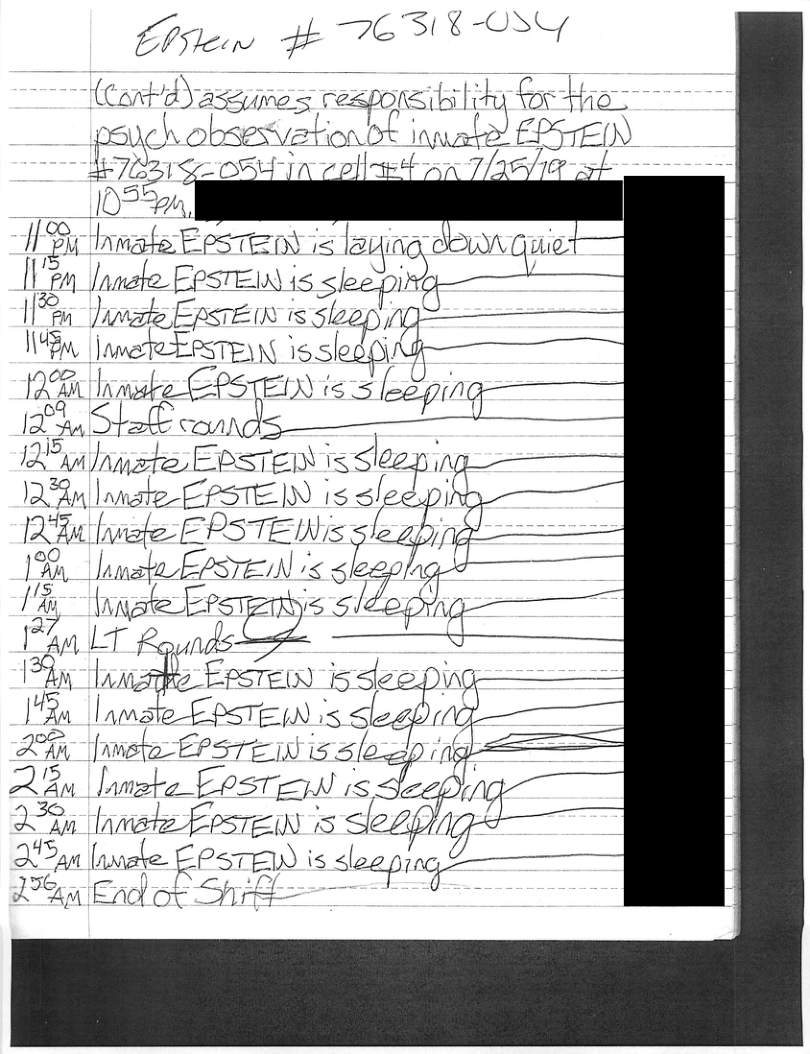 EPSTEIN # 76318-054
(Cont'd) assumes responsibility for the
psych observation of inmate EPSTEIN
#76318-054 in cell #4 on 7/25/19 at
10 55 PM.
11 00 PM Inmate EPSTEIN is laying down quiet
11 15 PM Inmate EPSTEIN is sleeping
11 30 PM Inmate EPSTEIN is sleeping
11 45 PM Inmate EPSTEIN is sleeping
12 00 AM Inmate EPSTEIN is sleeping
12 09 AM Staff rounds
12 15 AM Inmate EPSTEIN is sleeping
12 30 AM Inmate EPSTEIN is sleeping
12 45 AM Inmate EPSTEIN is sleeping
1 00 AM Inmate EPSTEIN is sleeping
1 15 AM Inmate EPSTEIN is sleeping
1 27 AM LT Rounds
1 30 AM Inmate EPSTEIN is sleeping
1 45 AM Inmate EPSTEIN is sleeping
2 00 AM Inmate EPSTEIN is sleeping
2 15 AM Inmate EPSTEIN is sleeping
2 30 AM Inmate EPSTEIN is sleeping
2 45 AM Inmate EPSTEIN is sleeping
2 56 AM End of Shift